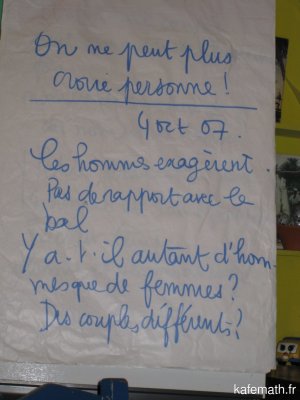 On ne peut plus
croire personne !
4 oct 07.
Les hommes exagèrent.
Pas de rapport avec le
bal
Y a-t-il autant d'hom-
mes que de femmes ?
Des couples différents ?
kafemath.fr